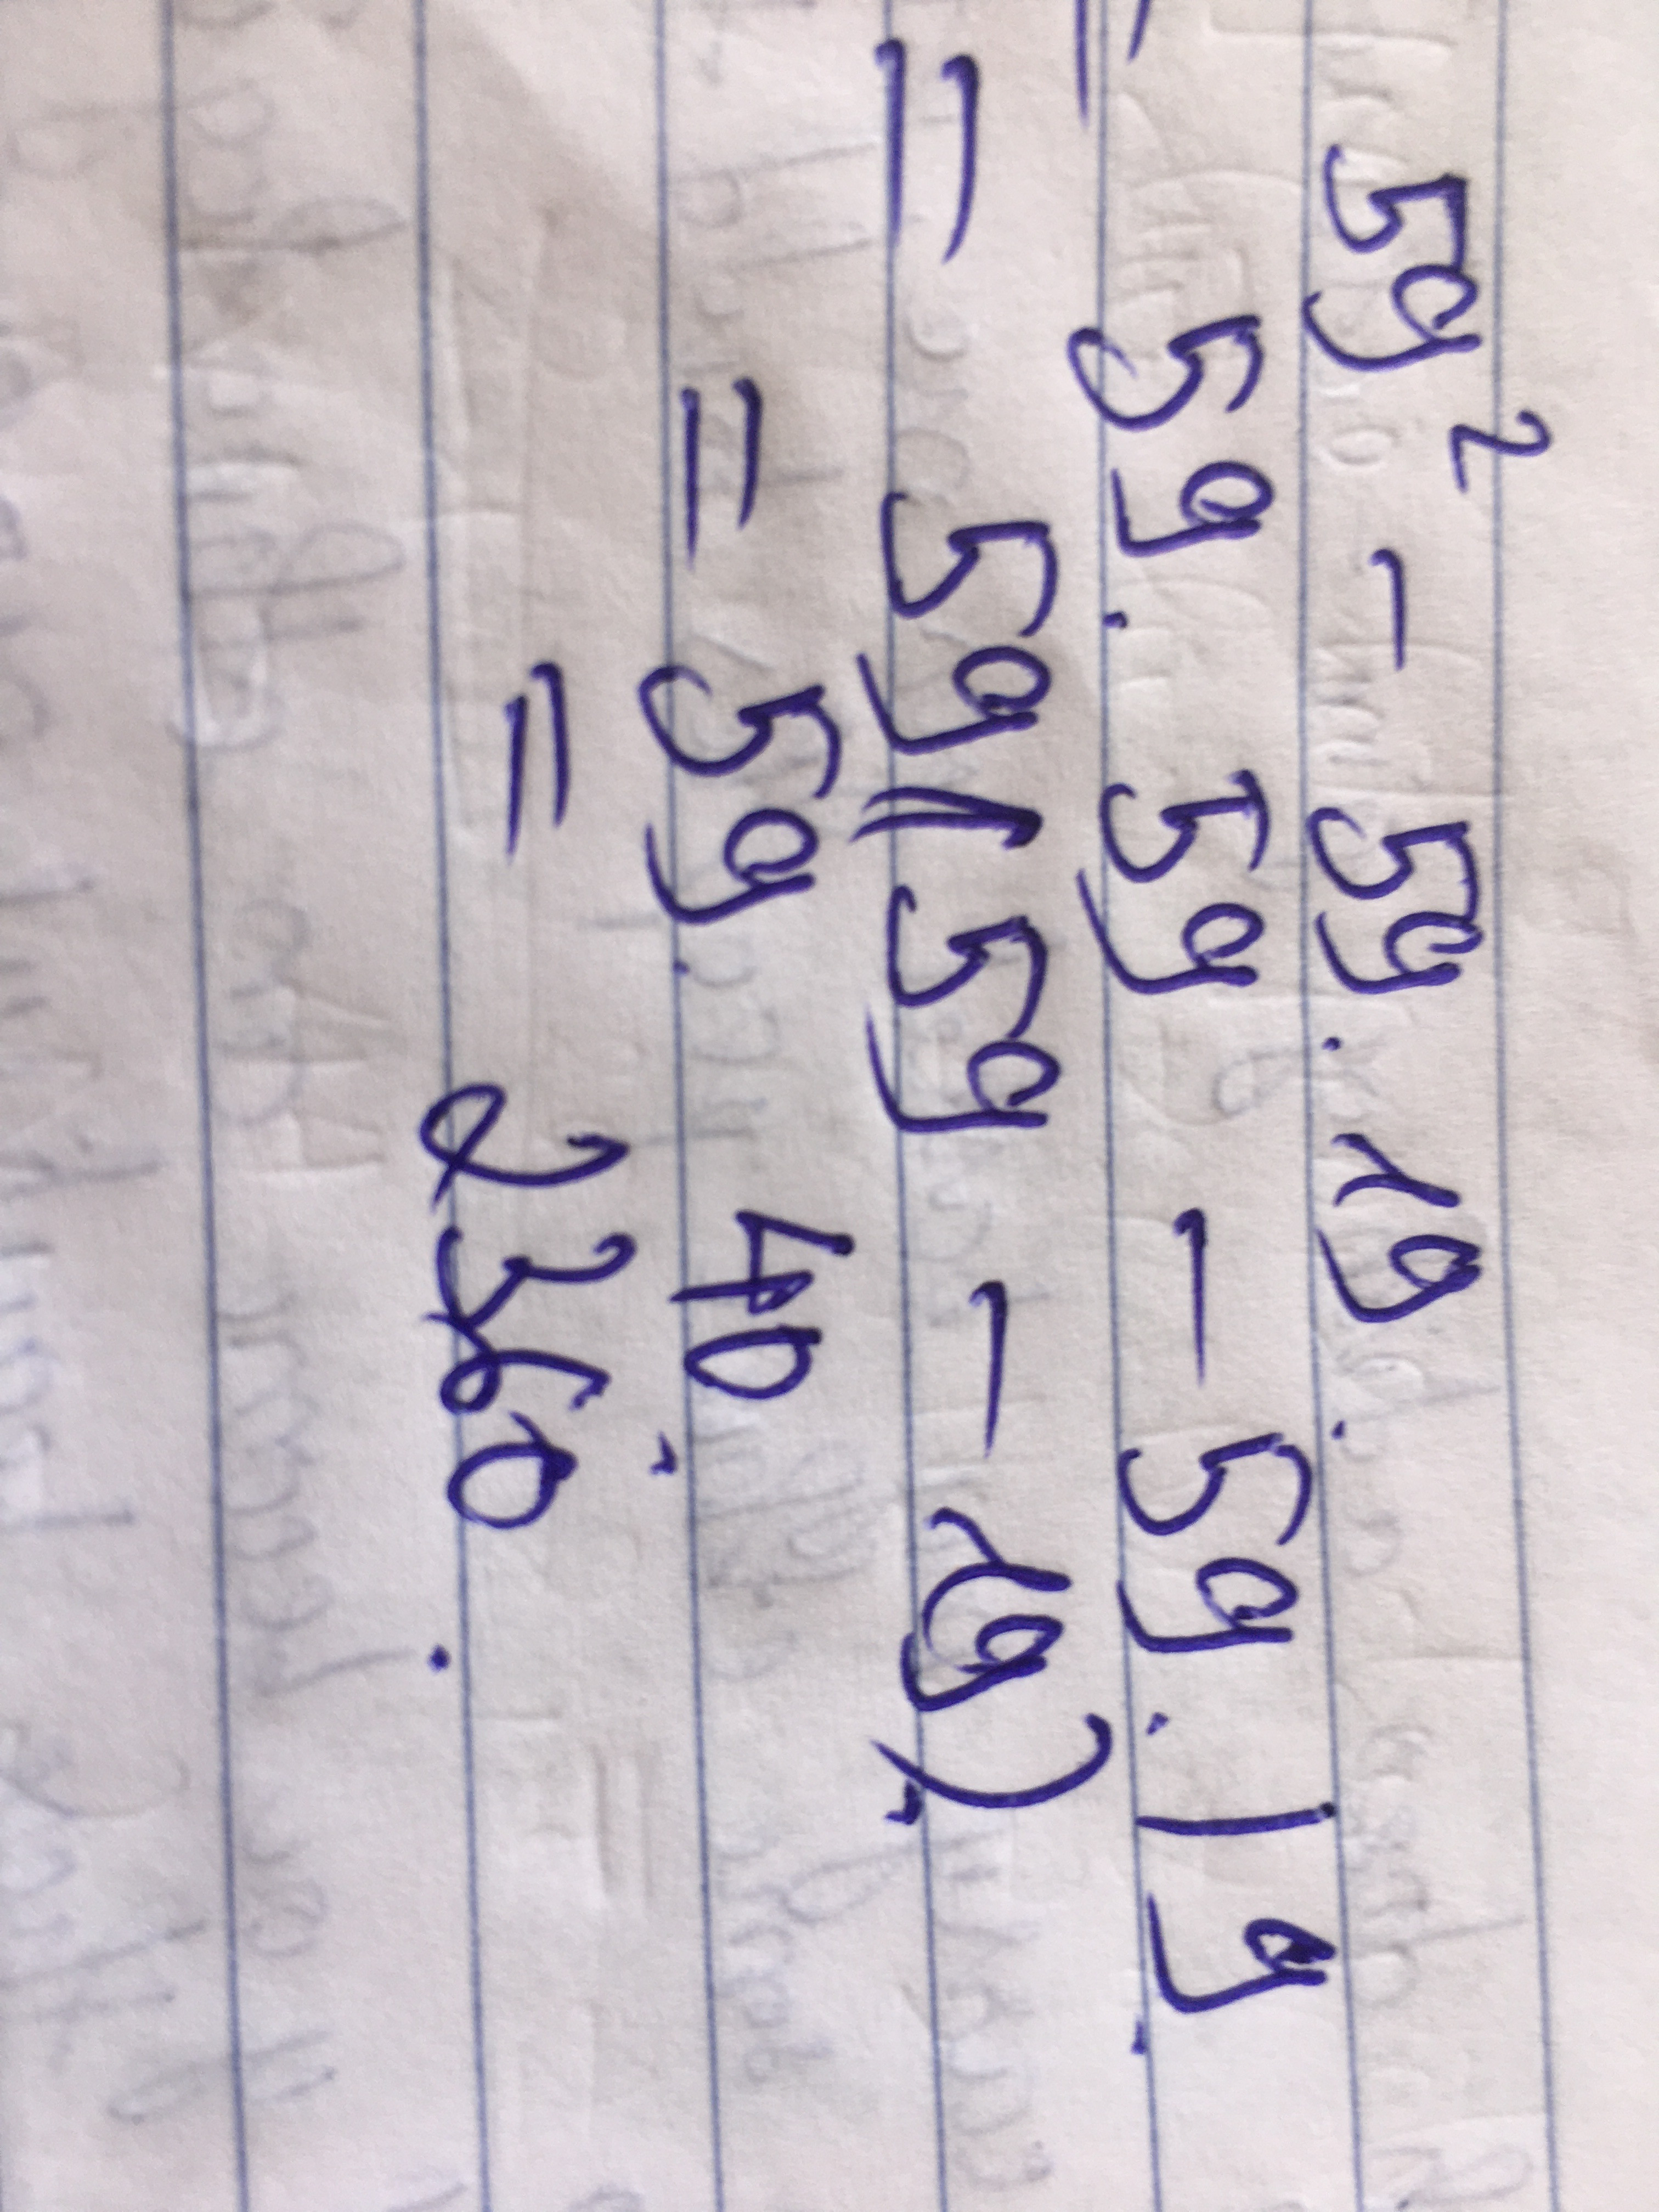 59² - 59 . 19 .
= 59 . 59 - 59 . 19 .
= 59 ( 59 - 19 ) .
= 59 . 40 .
= 2360 .